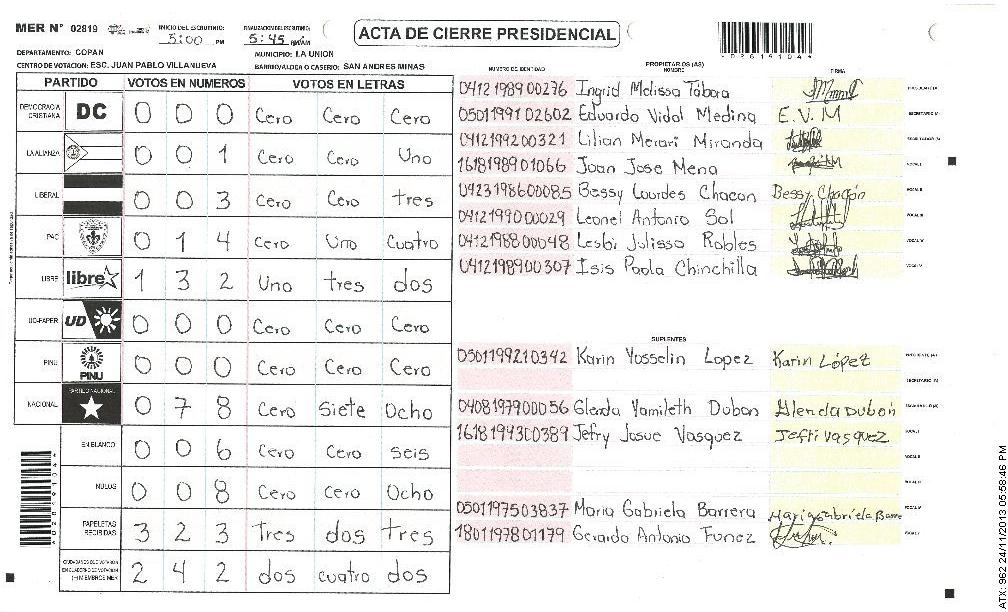 MER N° 02819 INICIO DEL ESCRUTINIO: 5:00 PM FINALIZACION DEL ESCRUTINIO: 5:45 PM/AM ACTA DE CIERRE PRESIDENCIAL
DEPARTAMENTO: COPAN MUNICIPIO: LA UNION
CENTRO DE VOTACION: ESC. JUAN PABLO VILLANUEVA BARRIO/ALDEA O CASERIO: SAN ANDRES MINAS
PARTIDO VOTOS EN NUMEROS VOTOS EN LETRAS
DEMOCRACIA CRISTIANA DC 0 0 0 Cero Cero Cero
LA ALIANZA 0 0 1 Cero Cero Uno
LIBERAL 0 0 3 Cero Cero tres
PAC 0 1 4 Cero Uno Cuatro
LIBRE libre 1 3 2 Uno tres dos
UD-FAPER UD 0 0 0 Cero Cero Cero
PINU PINU 0 0 0 Cero Cero Cero
NACIONAL PARTIDO NACIONAL 0 7 8 Cero Siete Ocho
EN BLANCO 0 0 6 Cero Cero seis
NULOS 0 0 8 Cero Cero Ocho
PAPELETAS RECIBIDAS 3 2 3 Tres dos tres
2 4 2 dos cuatro dos
NUMERO DE IDENTIDAD PROPIETARIOS (AS) NOMBRE FIRMA
0412198900276 Ingrid Melissa Tabora
0501199102602 Eduardo Vidal Medina E.V.M
0412199200321 Lilian Merari Miranda
1618198901066 Juan Jose Mena
0423198600085 Bessy Lourdes Chacon Bessy Chacón
0412199000029 Leonel Antonio Sol
0412198800048 Lesbi Julissa Robles
0412198900307 Isis Paola Chinchilla
SUPLENTES
0501199210342 Karin Yosselin Lopez Karin López
0408197900056 Glenda Yamileth Dubon Glenda Dubón
Jefry Josue Vasquez
0501197503837 Maria Gabriela Barrera
1801197801179 Gerardo Antonio Funez
ATX: 962 24/11/2013 05:58:46 PM